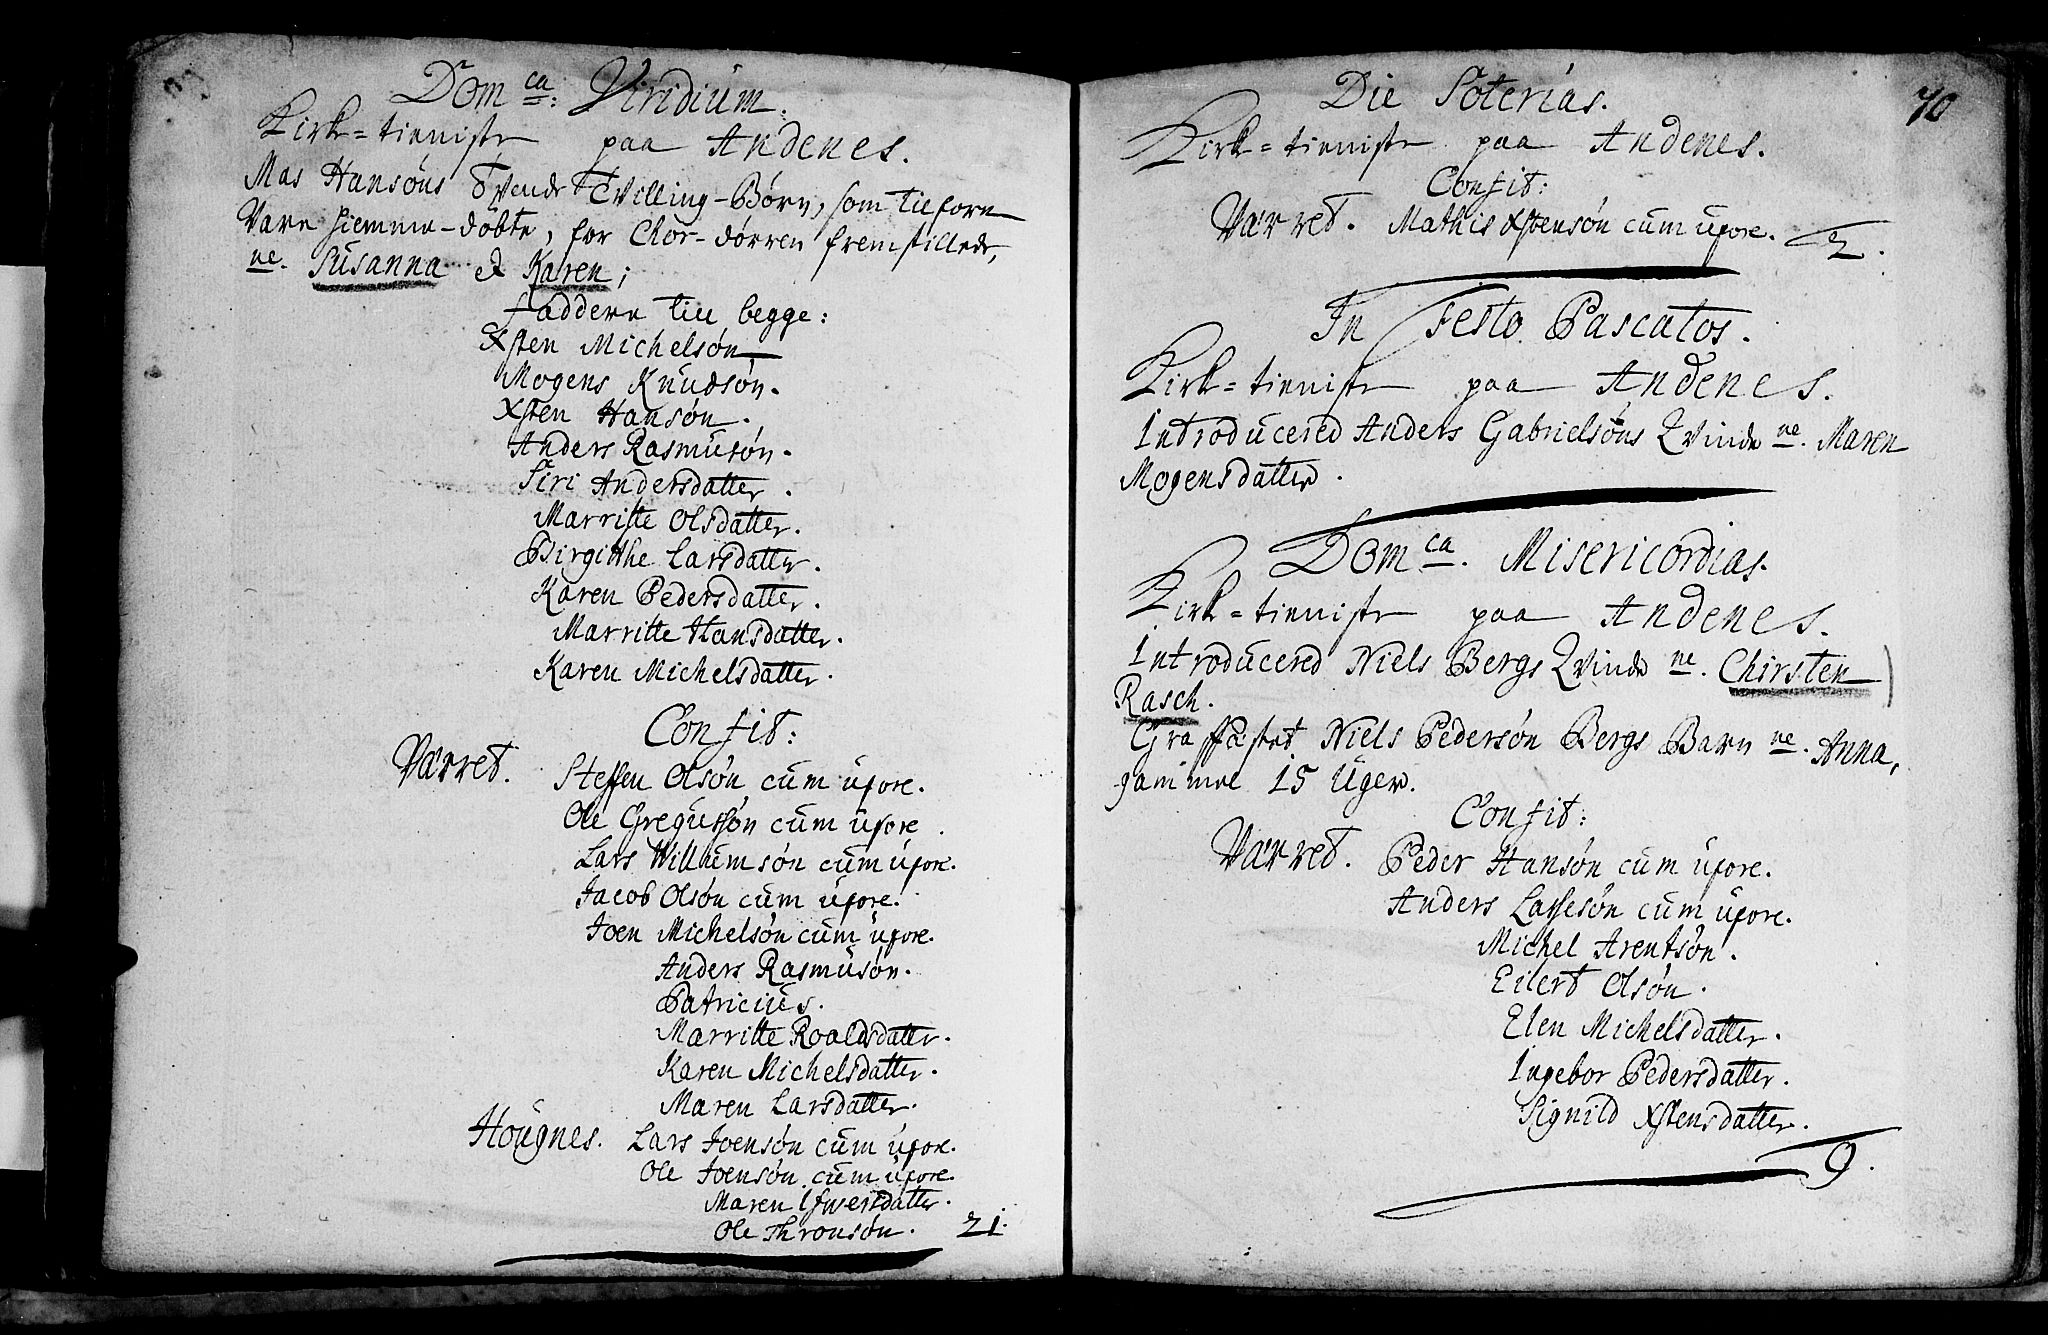 Domca: Viridium.
Kirke=tieniste paa Andenes.
Mas Hansøns Tvende Tvilling-Børn, som tilforn
Vare hiemme-døbte, for Chor-dørren fremstillede,
ne. Susanna et Karen;
Faddere till begge:
Xsten Michelsøn
Mogens Knudsøn.
Xsten Hansøn.
Anders Rasmusøn.
Siri Andersdatter.
Marritte Olsdatter.
Birgitthe Larsdatter.
Karen Pedersdatter.
Marritte Hansdatter.
Karen Michelsdatter.
Confit:
Værret. Steffen Olsøn cum uxore.
Ole Gregussøn cum uxore.
Lars Willumsøn cum uxore.
Jacob Olsøn cum uxore.
Joen Michelsøn cum uxore.
Anders Rasmusøn.
Patricius.
Marritte Roaldsdatter.
Karen Michelsdatter.
Maren Larsdatter.
Høugnes. Lars Joensøn cum uxore.
Ole Joensøn cum uxore.
Maren Ifwersdatter.
Ole Thronsøn. 21.
70
Die Soterias.
Kirke=tieniste paa Andenes.
Confit:
Værret. Mathis Xstensøn cum uxore. 2.
In Festo Pascatos.
Kirke=tieniste paa Andenes.
Introducered Anders Gabrielsøns Qvinde ne. Maren
Mogensdatter.
Domca. Misericordias.
Kirke=tieniste paa Andenes.
Introducered Niels Bergs Qvinde ne. Chirsten
Rasch.
Graffæstet Niels Pedersøn Bergs Barn ne. Anna,
gammel 15 Uger.
Confit:
Værret. Peder Hansøn cum uxore.
Anders Lassesøn cum uxore.
Michel Arentsøn.
Eilert Olsøn.
Elen Michelsdatter.
Ingebor Pedersdatter.
Signild Xstensdatter.
9.